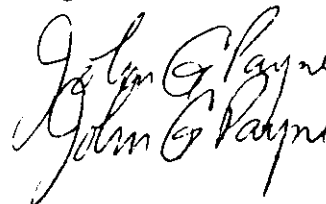 John G Payne
John G Payne